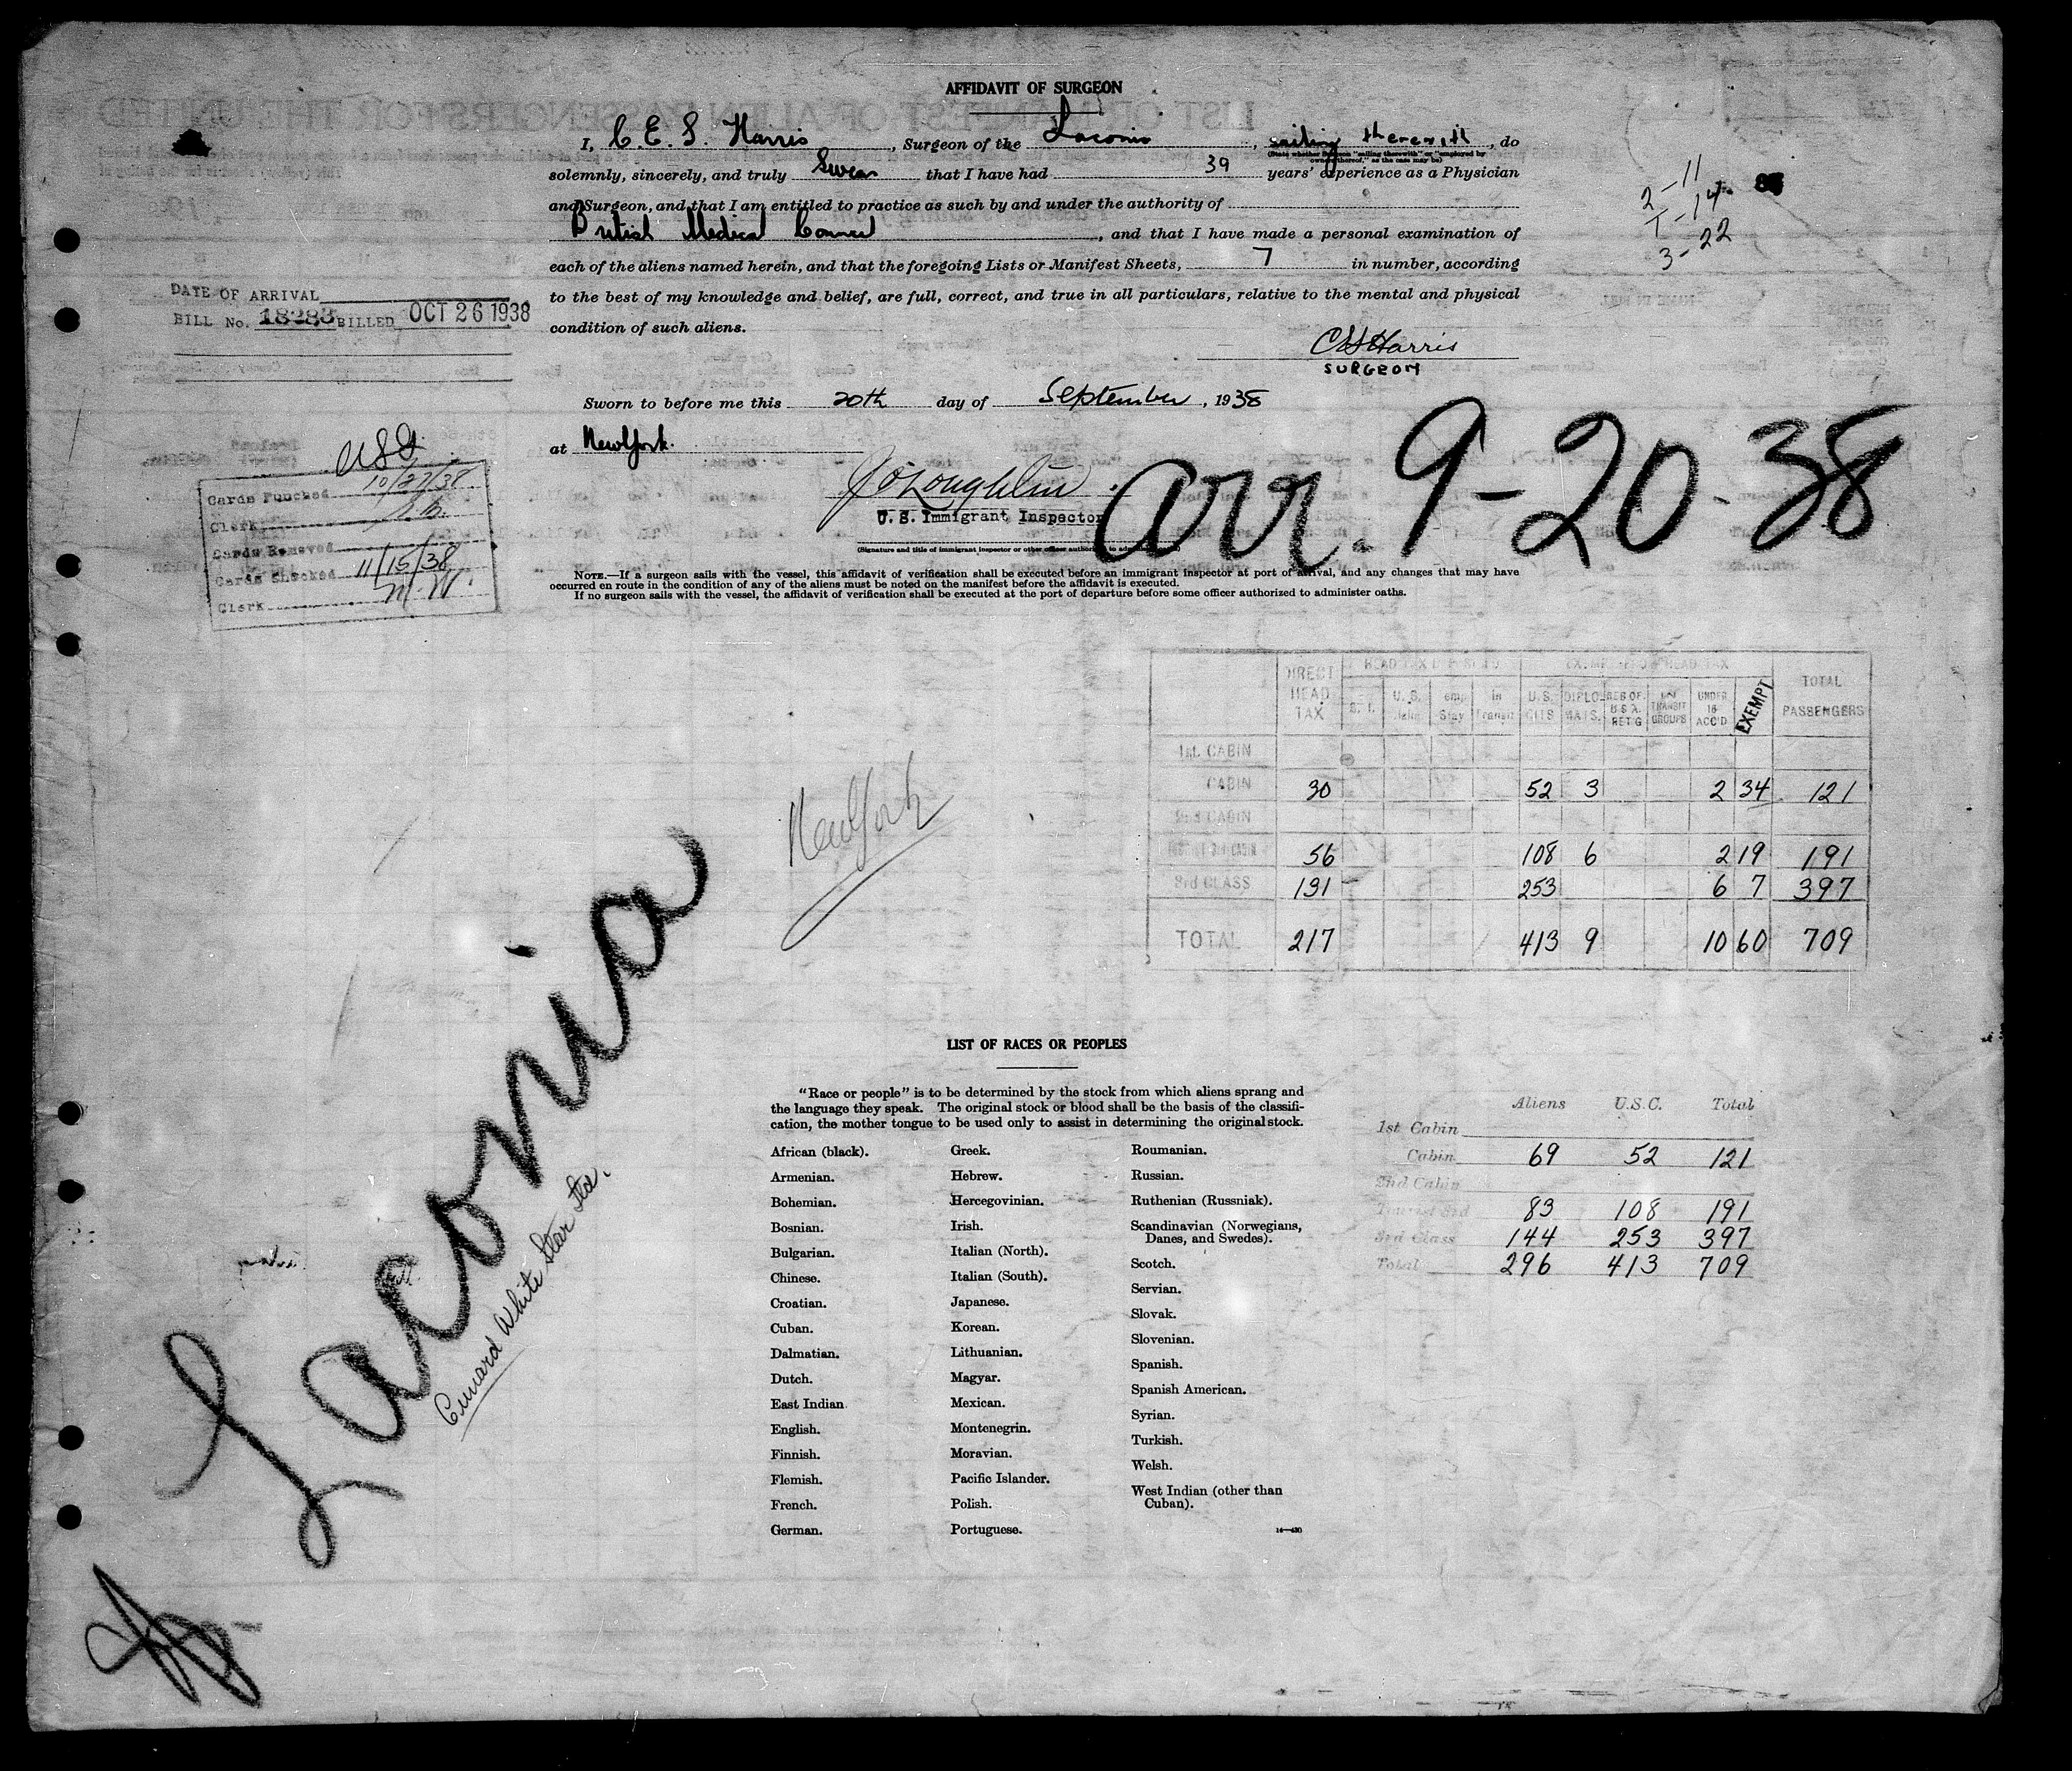 AFFIDAVIT OF SURGEON
I, C. E. S. Harris, Surgeon of the Laconia, sailing therewith, do
(State whether Surgeon "sailing therewith" or "employed by owners thereof," as the case may be)
solemnly, sincerely, and truly Swear that I have had 39 years' experience as a Physician
and Surgeon, and that I am entitled to practice as such by and under the authority of
British Medical Council, and that I have made a personal examination of
each of the aliens named herein, and that the foregoing Lists or Manifest Sheets, 7 in number, according
to the best of my knowledge and belief, are full, correct, and true in all particulars, relative to the mental and physical
condition of such aliens.
Harris
SURGEON
Sworn to before me this 20th day of September, 1938
at New York.
J O'Loughlin
U. S. Immigrant Inspector
(Signature and title of immigrant inspector or other officer authorized to administer oaths)
NOTE.—If a surgeon sails with the vessel, this affidavit of verification shall be executed before an immigrant inspector at port of arrival, and any changes that may have
occurred en route in the condition of any of the aliens must be noted on the manifest before the affidavit is executed.
If no surgeon sails with the vessel, the affidavit of verification shall be executed at the port of departure before some officer authorized to administer oaths.
2-11
1-14
3-22
DATE OF ARRIVAL
BILL No. 18283 BILLED OCT 26 1938
Cards Punched 10/27/38
Clerk
Cards Removed
Cards Checked 11/15/38
Clerk M.W.
arr. 9-20-38
DIRECT HEAD TAX
U.S. CITS DIPLO-MATS. RES OF U.S.A. RET'G TRANSIT GROUPS UNDER 16 ACC'D EXEMPT TOTAL PASSENGERS
1st. CABIN
CABIN 30 52 3 2 34 121
2nd CABIN
56 108 6 2 19 191
3rd CLASS 131 253 6 7 397
TOTAL 217 413 9 10 60 709
New York
Laconia
Cunard White Star Ltd.
LIST OF RACES OR PEOPLES
"Race or people" is to be determined by the stock from which aliens sprang and
the language they speak. The original stock or blood shall be the basis of the classifi-
cation, the mother tongue to be used only to assist in determining the original stock.
African (black).
Armenian.
Bohemian.
Bosnian.
Bulgarian.
Chinese.
Croatian.
Cuban.
Dalmatian.
Dutch.
East Indian
English.
Finnish.
Flemish.
French.
German.
Greek.
Hebrew.
Hercegovinian.
Irish.
Italian (North).
Italian (South).
Japanese.
Korean.
Lithuanian.
Magyar.
Mexican.
Montenegrin.
Moravian.
Pacific Islander.
Polish.
Portuguese.
Roumanian.
Russian.
Ruthenian (Russniak).
Scandinavian (Norwegians,
Danes, and Swedes).
Scotch.
Servian.
Slovak.
Slovenian.
Spanish.
Spanish American.
Syrian.
Turkish.
Welsh.
West Indian (other than
Cuban).
Aliens U.S.C. Total
1st Cabin
Cabin 69 52 121
2nd Cabin
Tourist 3rd 83 108 191
3rd Class 144 253 397
Total 296 413 709